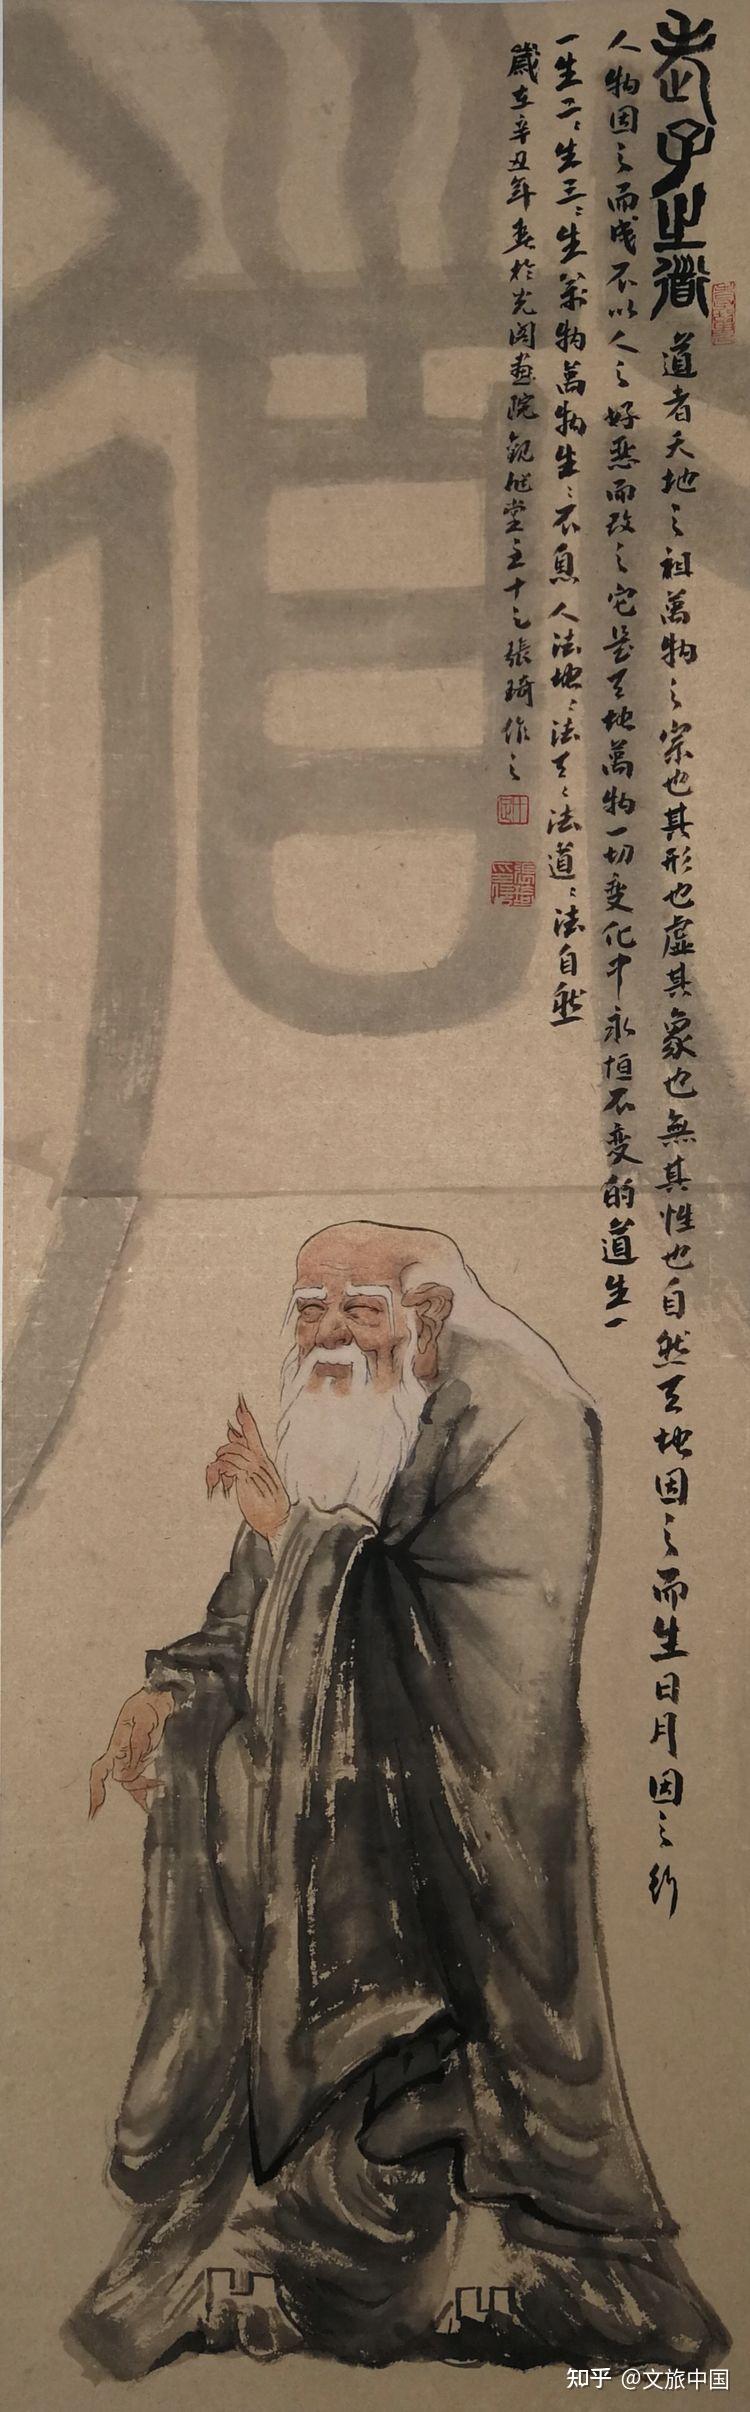 老子之道
道者天地之祖萬物之宗也其形也虛其象也無其性也自然天地因之而生日月因之行
人物因之而成不以人之好惡而改之它是天地萬物一切變化中永恒不变的道生一
一生二〻生三〻生萬物萬物生〻不息人法地〻法天〻法道〻法自然
歲在辛丑年春於光閣畫院觀䋲堂主十之張琦作之
知乎 @文旅中国